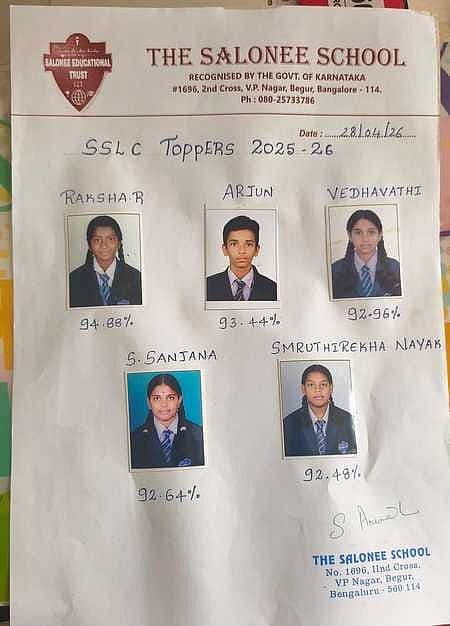 SALONEE EDUCATIONAL
TRUST
THE SALONEE SCHOOL
RECOGNISED BY THE GOVT. OF KARNATAKA
#1696, 2nd Cross, V.P. Nagar, Begur, Bangalore - 114.
Ph : 080-25733786
Date : 28/04/26
SSLC TOPPERS 2025-26
RAKSHA.R ARJUN VEDHAVATHI
94.88% 93.44% 92.96%
S.SANJANA SMRUTHIREKHA NAYAK
92.64% 92.48%
THE SALONEE SCHOOL
No. 1696, IInd Cross,
V.P Nagar, Begur,
Bengaluru - 560 114